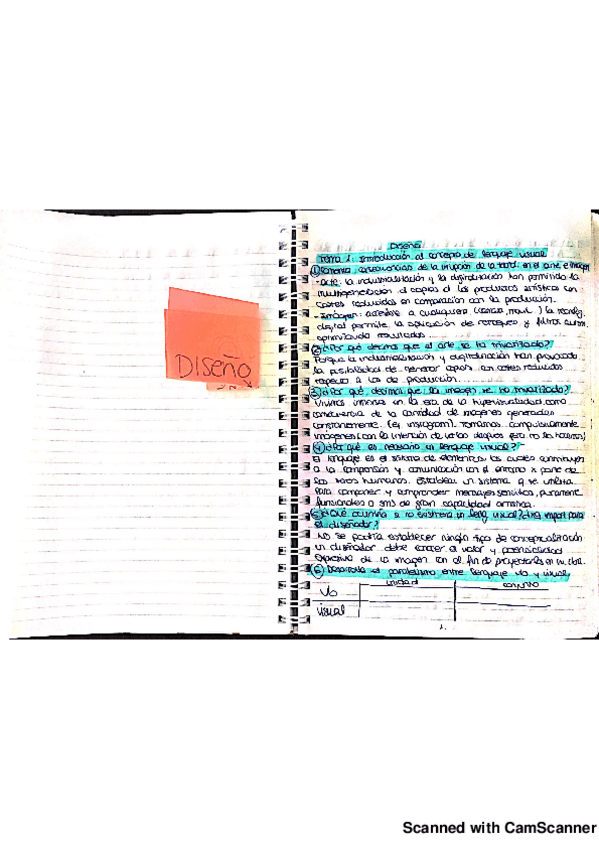 DISEÑO
Diseño
Tema 1: Introducción al concepto de lenguaje visual
① consecuencias de la irrupción de la en el arte e imagen
- Arte: la industrialización y la digitalización han permitido la
o copias d los productos artísticos con
costes reducidos en comparación con la producción.
- Imagen: accesible a cualquiera (cámara, móvil..) la
digital permite la aplicación de retoques y filtros
optimizando resultados
② ¿Por qué decimos que el arte se ha trivializado?
Porque la industrialización y digitalización han provocado
la posibilidad de generar copias en costes reducidos
respecto a los de producción
3. ¿Por qué decimos que la imagen se ha trivializado?
Vivimos inmersos en la era de la hipervisualidad como
consecuencia de la cantidad de imágenes generadas
constantemente. (ej. instagram). Tomamos compulsivamente
imágenes con la intención de verlas después (esto no se hace)
④ ¿Por qué es necesario un lenguaje visual?
El lenguaje es el sistema de elementos los cuales contribuyen
a la comprensión y comunicación con el entorno x parte de
los seres humanos. Establecer un sistema q se utiliza
para componer y comprender mensajes sencillos, puramente
funcionales o sms de gran capacidad
5. ¿Qué ocurriría si no existiera un leng. visual? para
el diseñador?
No se podría establecer ningún tipo de conceptualización
un diseñador debe conocer el valor y potencialidad
expresiva de la imagen con el fin de proyectarlos en su obra.
⑥ Desarrolla el paralelismo entre lenguaje v/o y visual
unidad conjunto
v/o
visual
1.
Scanned with CamScanner